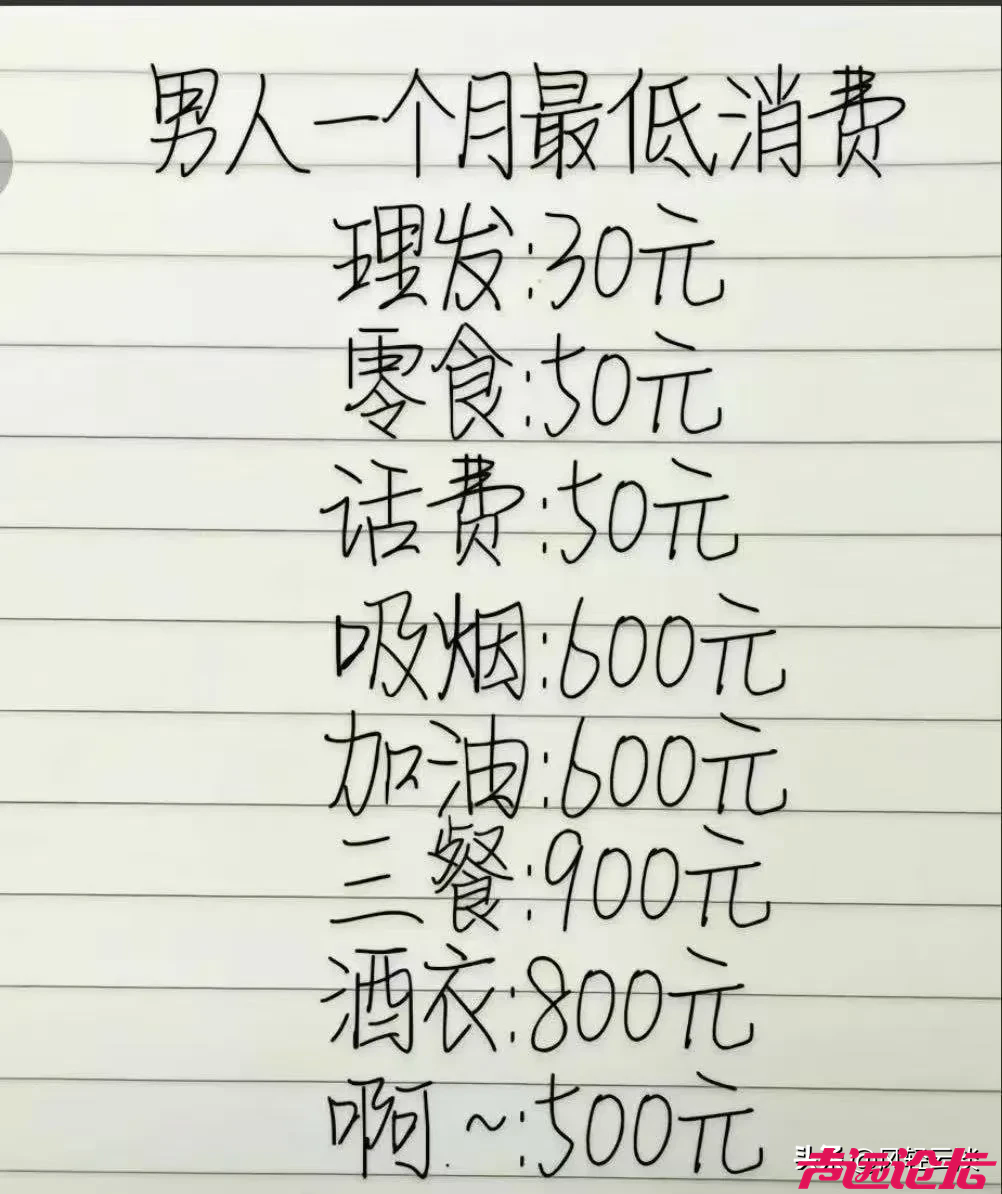 男人一个月最低消费
理发:30元
零食:50元
话费:50元
吸烟:600元
加油:600元
三餐:900元
酒衣:800元
啊~:500元
声远论坛